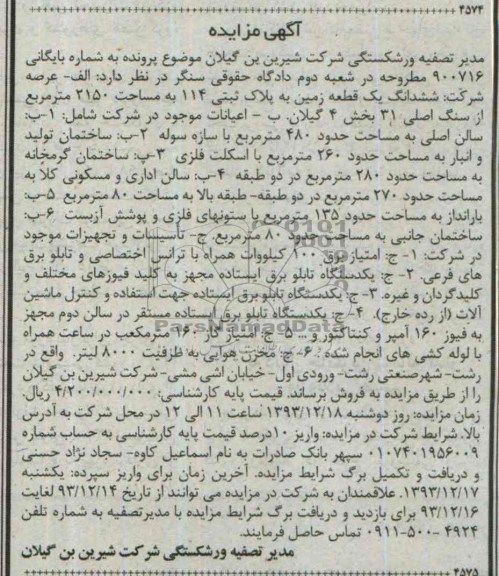 ۴۵۷۴
آگهی مزایده
مدیر تصفیه ورشکستگی شرکت شیرین ین گیلان موضوع پرونده به شماره بایگانی
۹۰۰۷۱۶ مطروحه در شعبه دوم دادگاه حقوقی سنگر در نظر دارد: الف- عرصه
شرکت: ششدانگ یک قطعه زمین به پلاک ثبتی ۱۱۴ به مساحت ۲۱۵۰ مترمربع
از سنگ اصلی ۳۱ بخش ۴ گیلان. ب - اعیانات موجود در شرکت شامل: ۱-ب:
سالن اصلی به مساحت حدود ۴۸۰ مترمربع با سازه سوله ۲-ب: ساختمان تولید
و انبار به مساحت حدود ۲۶۰ مترمربع با اسکلت فلزی ۳-ب: ساختمان گرمخانه
به مساحت حدود ۲۸۰ مترمربع در دو طبقه ۴-ب: سالن اداری و مسکونی کلا به
مساحت حدود ۲۷۰ مترمربع در دو طبقه- طبقه بالا به مساحت ۸۰ مترمربع ۵-ب:
بارانداز به مساحت حدود ۱۳۵ مترمربع با ستونهای فلزی و پوشش آزبست ۶-ب:
ساختمان جانبی به مساحت حدود ۸۰ مترمربع. ج- تأسیسات و تجهیزات موجود
در شرکت: ۱- ج: امتیاز برق ۱۰۰ کیلووات همراه با ترانس اختصاصی و تابلو برق
های فرعی. ۲- ج: یکدستگاه تابلو برق ایستاده مجهز به کلید فیوزهای مختلف و
کلیدگردان و غیره. ۳- ج: یکدستگاه تابلو برق ایستاده جهت استفاده و کنترل ماشین
آلات (از رده خارج). ۴- ج: یکدستگاه تابلو برق ایستاده مستقر در سالن دوم مجهز
به فیوز ۱۶۰ آمپر و کنتاکتور و ... ۵- ج: امتیاز گاز ۱۶۰ مترمکعب در ساعت همراه
با لوله کشی های انجام شده . ۶- ج: مخزن هوایی به ظرفیت ۸۰۰۰ لیتر. واقع در
رشت- شهرصنعتی رشت- ورودی اول- خیابان اشی مشی- شرکت شیرین بن گیلان
را از طریق مزایده به فروش برساند. قیمت پایه کارشناسی: ۴/۲۰۰/۰۰۰/۰۰۰ ریال.
زمان مزایده: روز دوشنبه ۱۳۹۳/۱۲/۱۸ ساعت ۱۱ الی ۱۲ در محل شرکت به آدرس
بالا. شرایط شرکت در مزایده: واریز ۱۰درصد قیمت پایه کارشناسی به حساب شماره
۰۱۰۷۴۰۱۹۵۶۰۰۹ سپهر بانک صادرات به نام اسماعیل کاوه- سجاد نژاد حسنی
و دریافت و تکمیل برگ شرایط مزایده. آخرین زمان برای واریز سپرده: یکشنبه
۱۳۹۳/۱۲/۱۷. علاقمندان به شرکت در مزایده می توانند از تاریخ ۹۳/۱۲/۱۴ لغایت
۹۳/۱۲/۱۶ برای بازدید و دریافت برگ شرایط مزایده با مدیرتصفیه به شماره تلفن
۴۹۲۴ -۵۰۰-۰۹۱۱ تماس حاصل فرمایند.
مدیر تصفیه ورشکستگی شرکت شیرین بن گیلان
۴۵۷۵
ParsNamadData